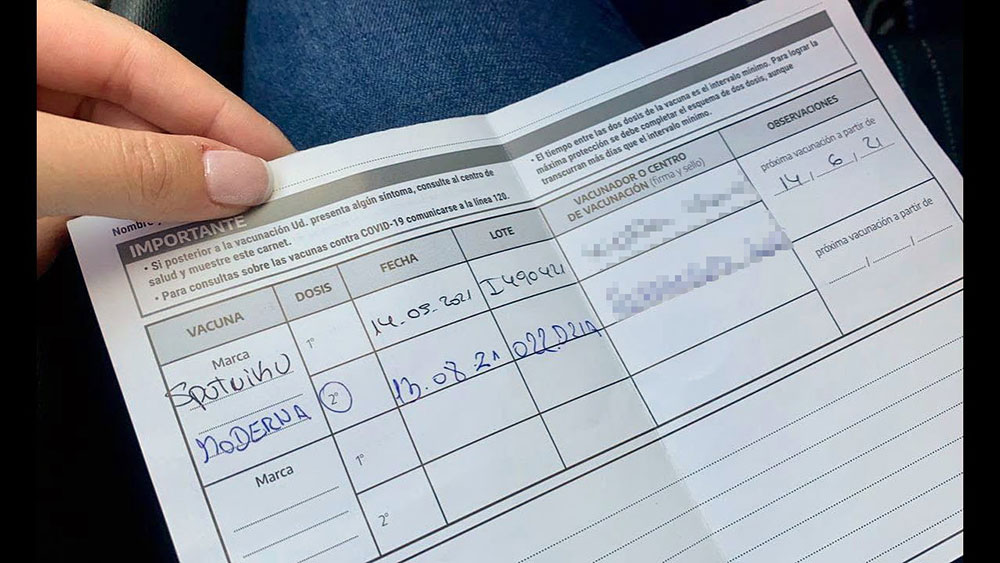 Nombre
IMPORTANTE
• Si posterior a la vacunación Ud. presenta algún síntoma, consulte al centro de
salud y muestre este carnet.
• Para consultas sobre las vacunas contra COVID-19 comunicarse a la línea 120.
VACUNA
DOSIS
FECHA
LOTE
Marca
1°
14.05.2021
I490421
Sputnik V
MODERNA
2°
13.08.21
022D21A
Marca
1°
2°
• El tiempo entre las dos dosis de la vacuna es el intervalo mínimo. Para lograr la
máxima protección se debe completar el esquema de dos dosis, aunque
transcurran más días que el intervalo mínimo.
VACUNADOR O CENTRO
DE VACUNACIÓN (firma y sello)
OBSERVACIONES
próxima vacunación a partir de
14 / 6 / 21
próxima vacunación a partir de